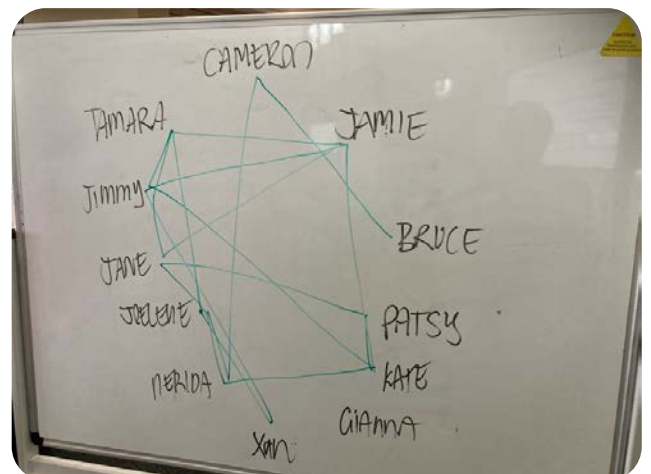 CAMERON
TAMARA
JAMIE
Jimmy
BRUCE
JANE
PATSY
NERIDA
KATE
GIANNA
Xan